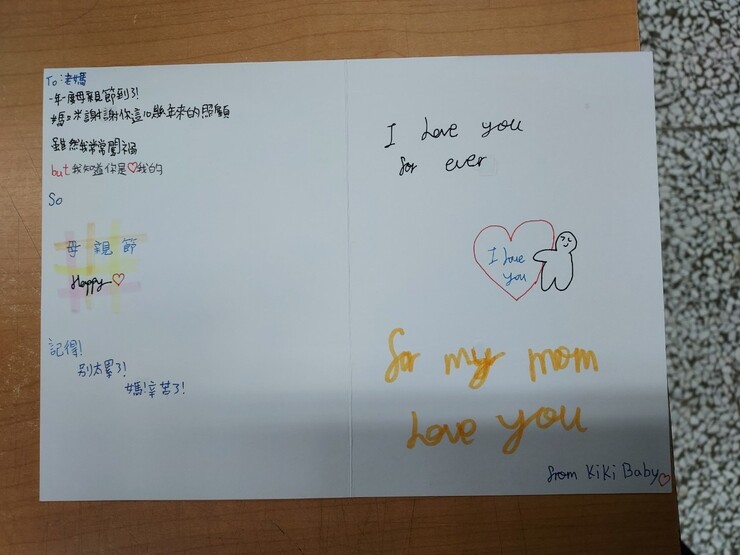 To:老媽
一年一度母親節到了!
媽~謝謝你這10幾年來的照顧
雖然我常常闖禍
but 我知道你是♡我的
So
母親節
Happy♡
記得!
別太累了!
媽!辛苦了!
I Love you
for ever
I love
you
for my mom
Love you
from KiKi Baby♡